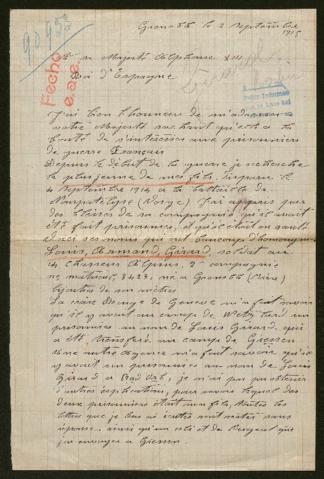 Grenoble le 2 Septembre
1915
90953
Fecho
e.a.e.
A sa Majesté Alphonse XIII
Roi d'Espagne
J'ai bien l'honneur de m'adresser
votre Majesté sachant qu'elle a la
bonté de s'intéresser aux prisonniers
de guerre Français
Depuis le début de la guerre je recherche
le plus jeune de mes fils, disparu le
4 Septembre 1914 à la bataille de
(Vosges) J'ai appris par
des blessés de sa compagnie qu'il avait
été fait prisonnier, et qu'il était en santé
ses noms qui ont beaucoup d'homonymes
Louis, Armand, Girard, soldat au
14 Chasseurs Alpins, 2e compagnie
no matricule, 8423, né à Grenoble (Isère)
bijoutier de son métier
La croix Rouge de Genève m'a fait savoir
qu'il y avait au camp de Wetzlar un
prisonnier au nom de Louis Girard, qui
a été transféré au camp de Giessen
Une autre Agence m'a fait savoir qu'il
y avait un prisonnier au nom de Louis
Girard à Bad Orb, je n'ai pas pu obtenir
d'autres explications, pour savoir lequel des
deux prisonniers était mon fils, toutes les
lettres que je leur ai écrites sont restées sans
réponse, ainsi qu'un colis et de l'argent que
j'ai envoyés à Giessen